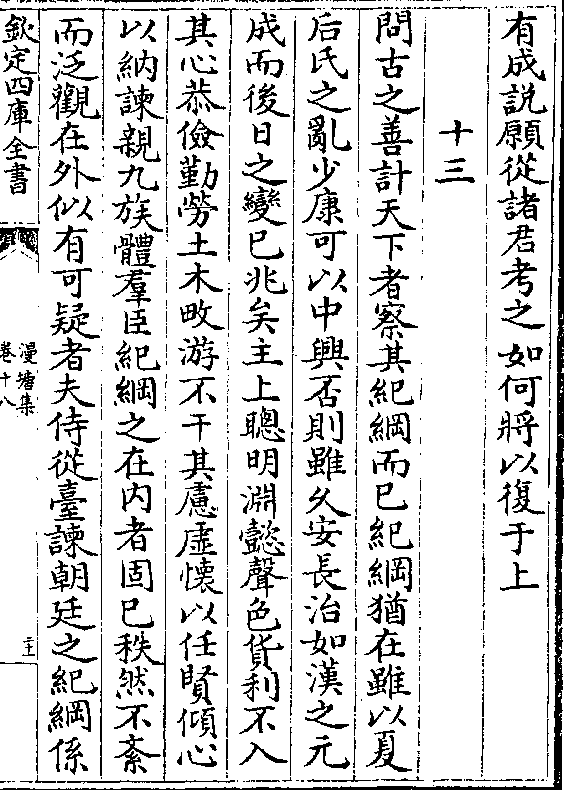 有成說願從諸君考之如何將以復于上
十三
問古之善計天下者察其紀綱而已紀綱猶在雖以夏
后氏之亂少康可以中興否則雖久安長治如漢之元
成而後日之變已兆矣主上聰明淵懿聲色貨利不入
其心恭儉勤勞土木畋游不干其慮虛懷以任賢傾心
以納諫親九族體羣臣紀綱之在内者固已秩然不紊
而泛觀在外似有可疑者夫侍從臺諫朝廷之紀綱係
欽定四庫全書
漫塘集
卷十八